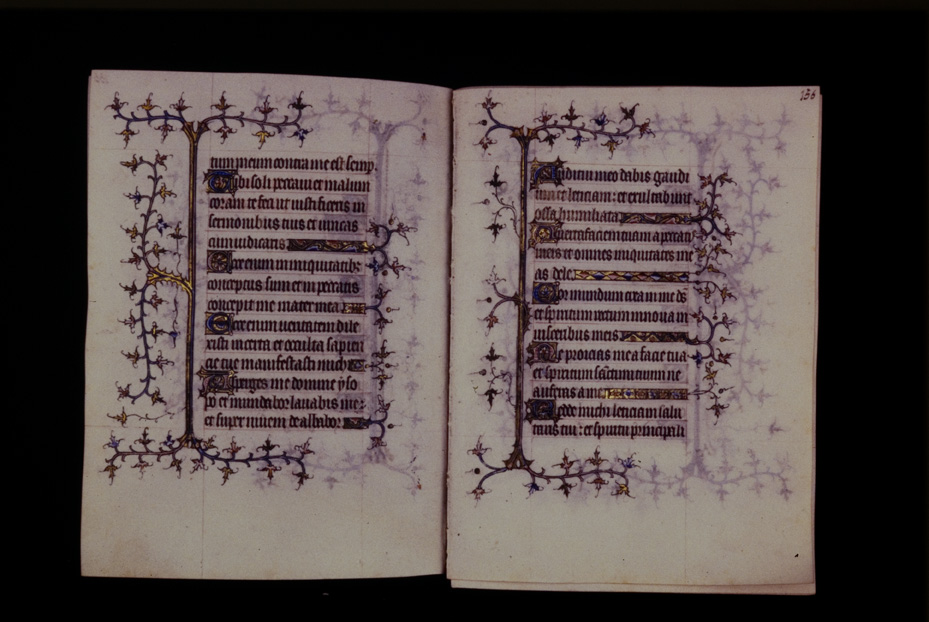 tum meum contra me est semp.
Tibi soli peccavi et malum
coram te feci ut iustificeris in
sermonibus tuis et vincas
cum iudicaris
Ecce enim in iniquitatibz
conceptus sum et in peccatis
concepit me mater mea
Ecce enim veritatem dile
xisti incerta et occulta sapien
cie tue manifestasti michi
Asperges me domine yso
po et mundabor lavabis me:
et super nivem dealbabor
136
Auditui meo dabis gaudi
um et leticiam: et exultabunt
ossa humiliata
Averte faciem tuam a peccatis
meis et omnes iniquitates me
as dele
Cor mundum crea in me ds
et spiritum rectum innova in
visceribus meis
Ne proicias me a facie tua
et spiritum sanctum tuum ne
auferas a me
Redde michi leticiam salu
taris tui: et spiritu principali